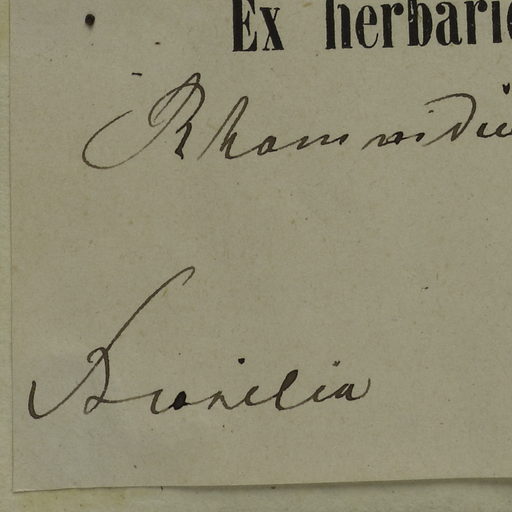 Ex herbario
Rhamnidiu
Brasilia